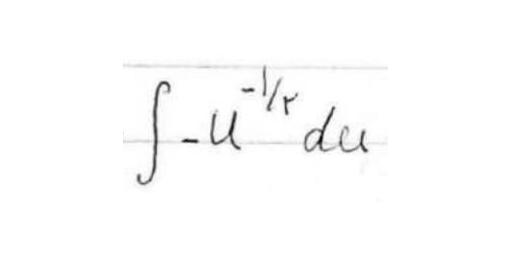 ∫ -u^{-1/٢} du